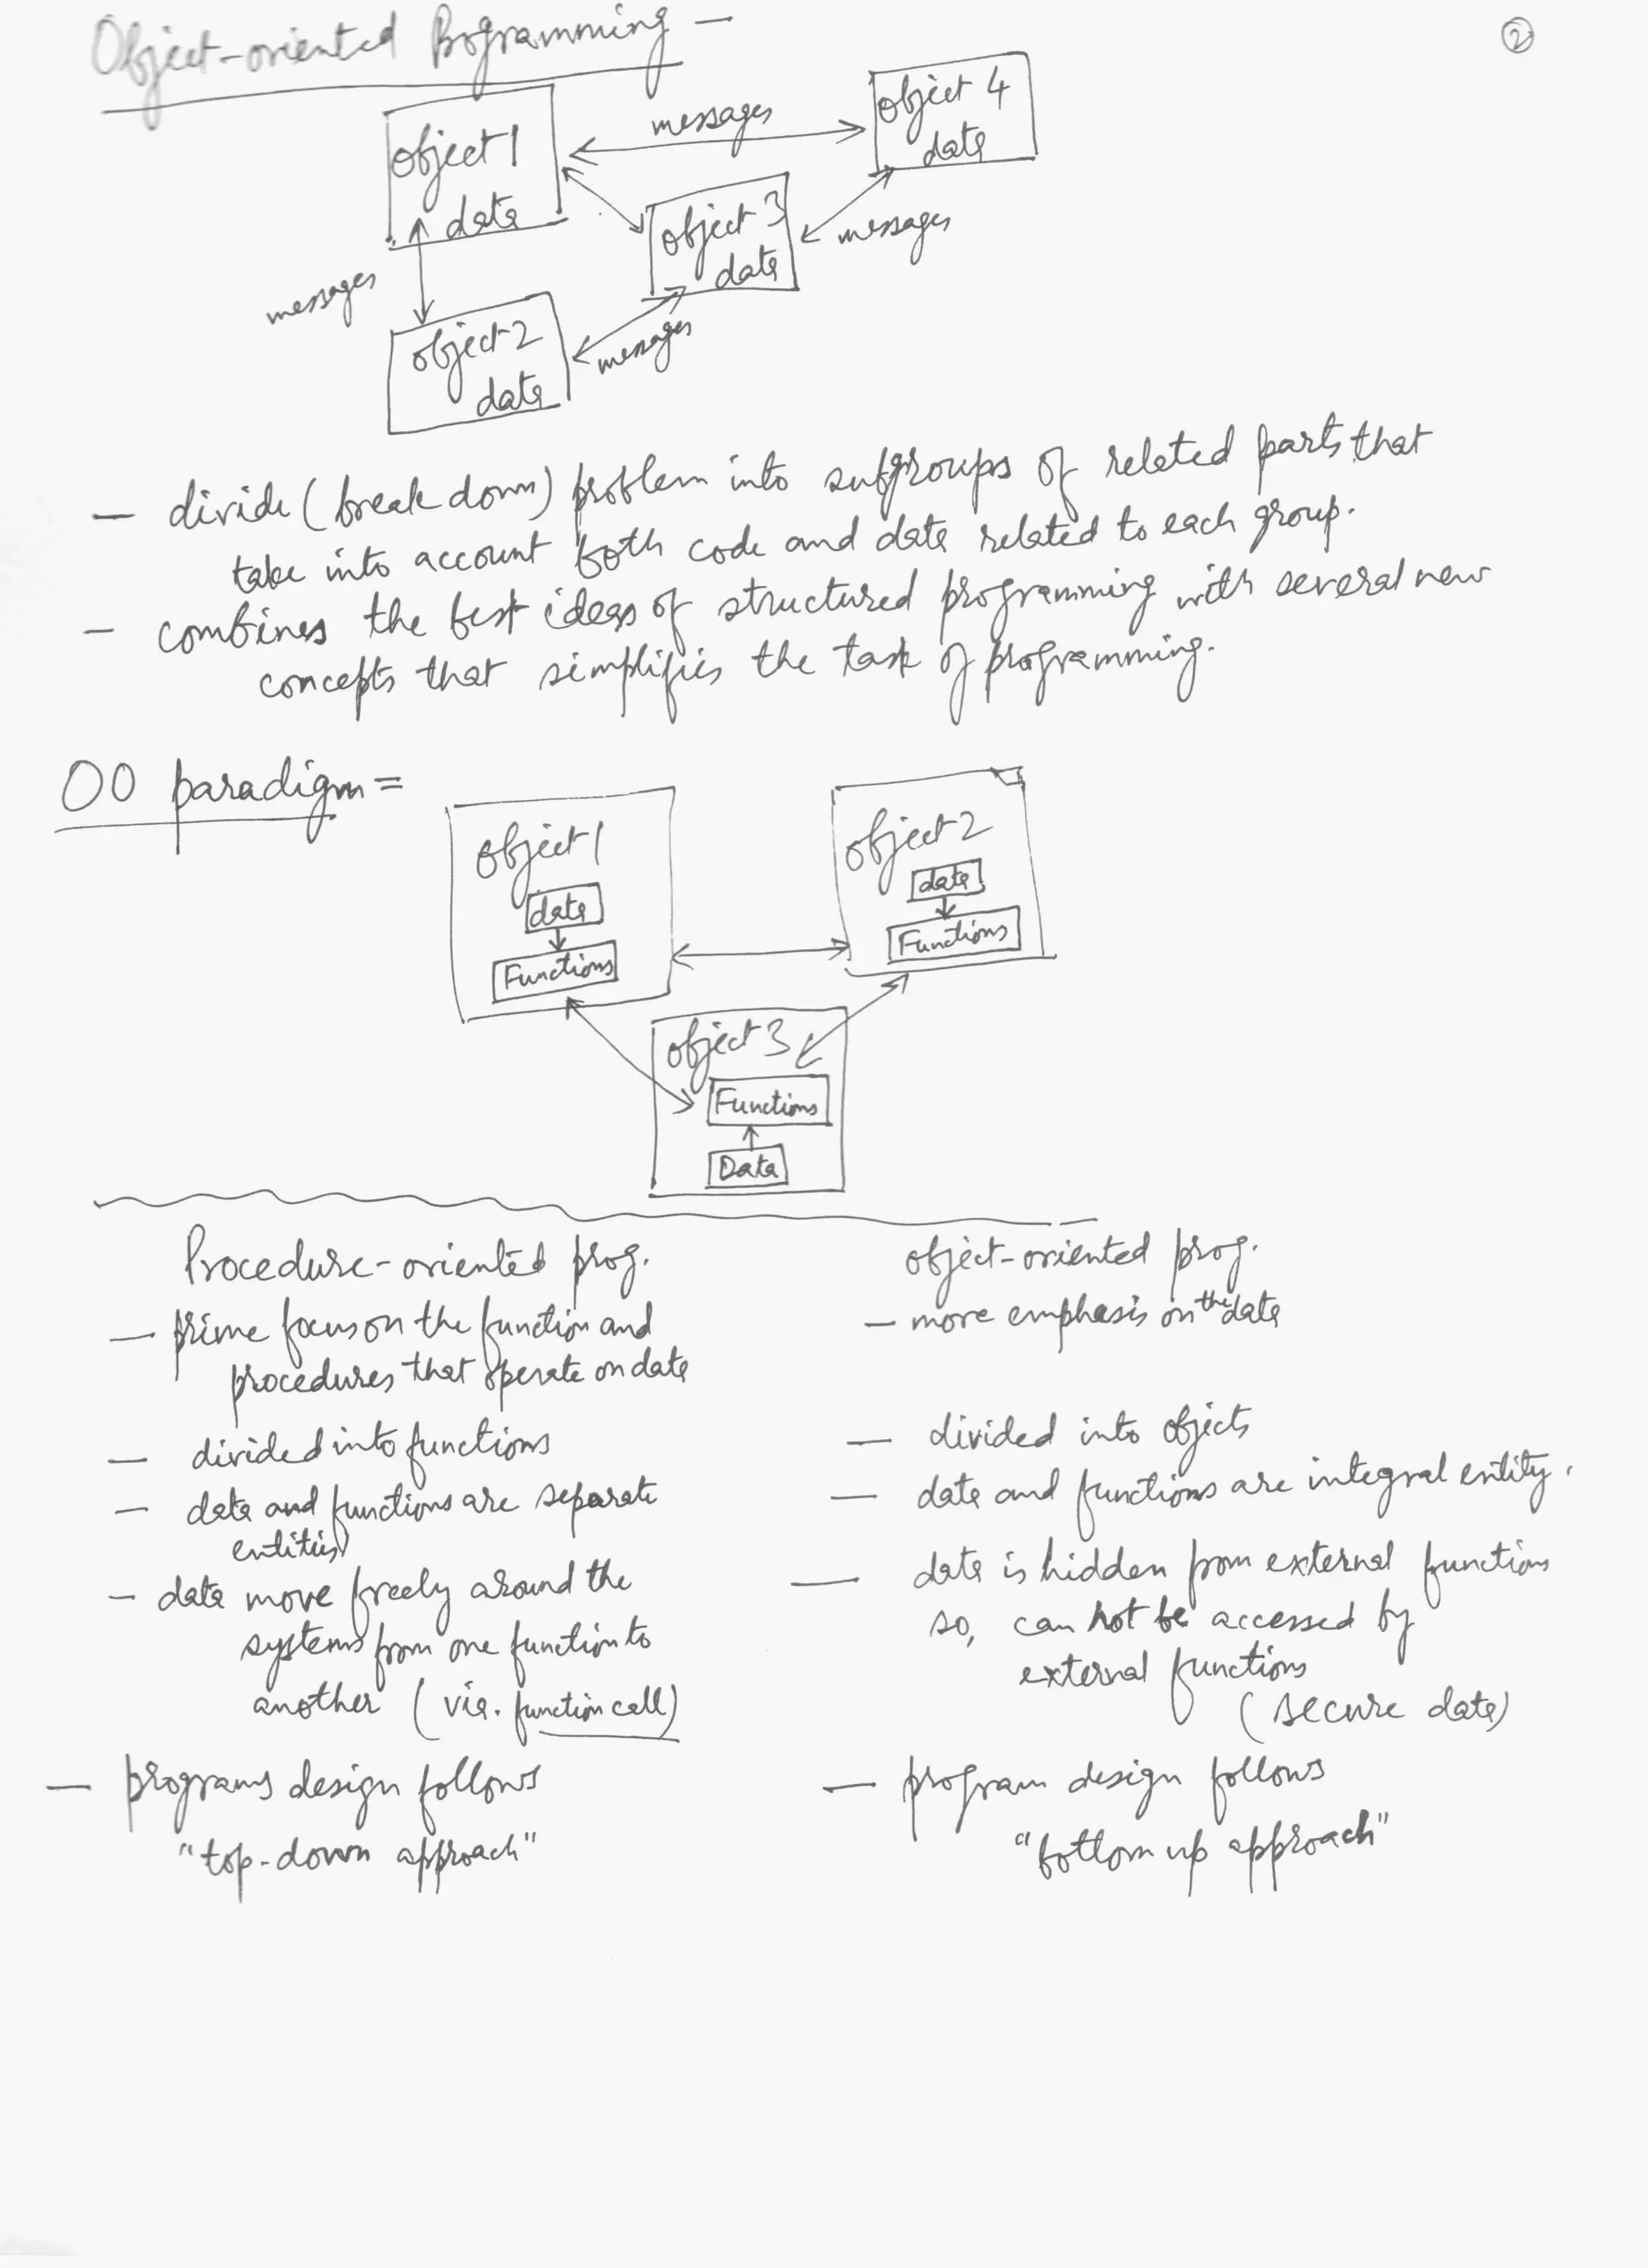 Object-oriented Programming —
②
object 1
data
messages
object 4
data
object 3
data
messages
messages
object 2
data
messages
— divide (break down) problem into subgroups of related parts that
take into account both code and data related to each group.
— combines the best ideas of structured programming with several new
concepts that simplifies the task of programming.
OO paradigm =
object 1
data
Functions
object 2
data
Functions
object 3
Functions
Data
Procedure-oriented prog.
— prime focus on the function and
procedures that operate on data
— divided into functions
— data and functions are separate
entities
— data move freely around the
systems from one function to
another (via. function call)
— programs design follows
"top-down approach"
object-oriented prog.
— more emphasis on the data
— divided into objects
— data and functions are integral entity.
— data is hidden from external functions
so, can not be accessed by
external functions
(secure data)
— program design follows
"bottom up approach"